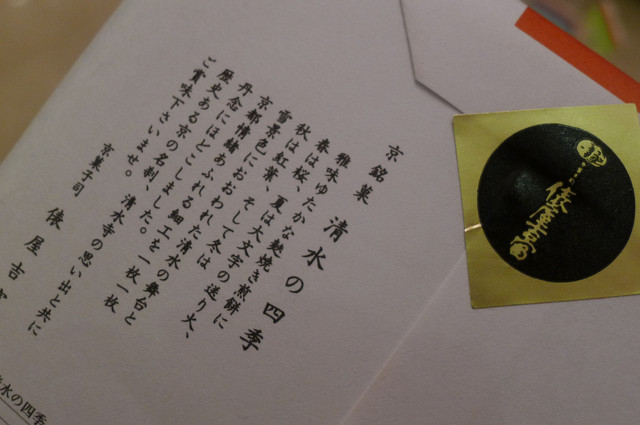 京銘菓 清水の四季
雅味ゆたかな麩焼き煎餅に
春は桜、夏は大文字の送り火、
秋は紅葉、そして冬は
雪景色におおわれた清水の舞台と
京都情緒あふれる細工を一枚一枚
丹念にほどこしました。
歴史ある京の名刹、清水寺の思い出と共に
ご賞味下さいませ。
京菓子司 俵屋吉
水の四季